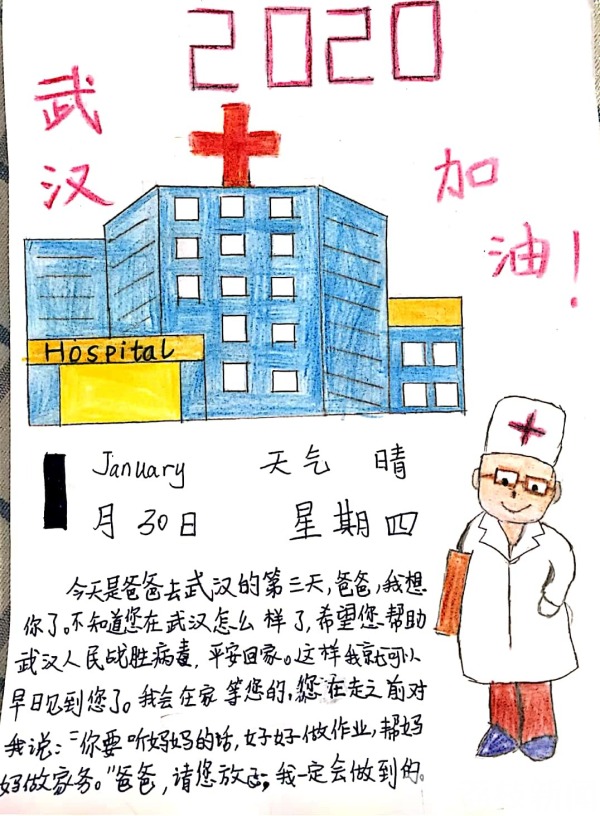 2020
武汉
加油!
Hospital
January 天气 晴
月30日 星期四
今天是爸爸去武汉的第三天,爸爸,我想
你了。不知道您在武汉怎么样了,希望您帮助
武汉人民战胜病毒,平安回家。这样我就可以
早日见到您了。我会在家等您的,您在走之前对
我说:“你要听妈妈的话,好好做作业,帮妈
妈做家务。”爸爸,请您放心,我一定会做到的。